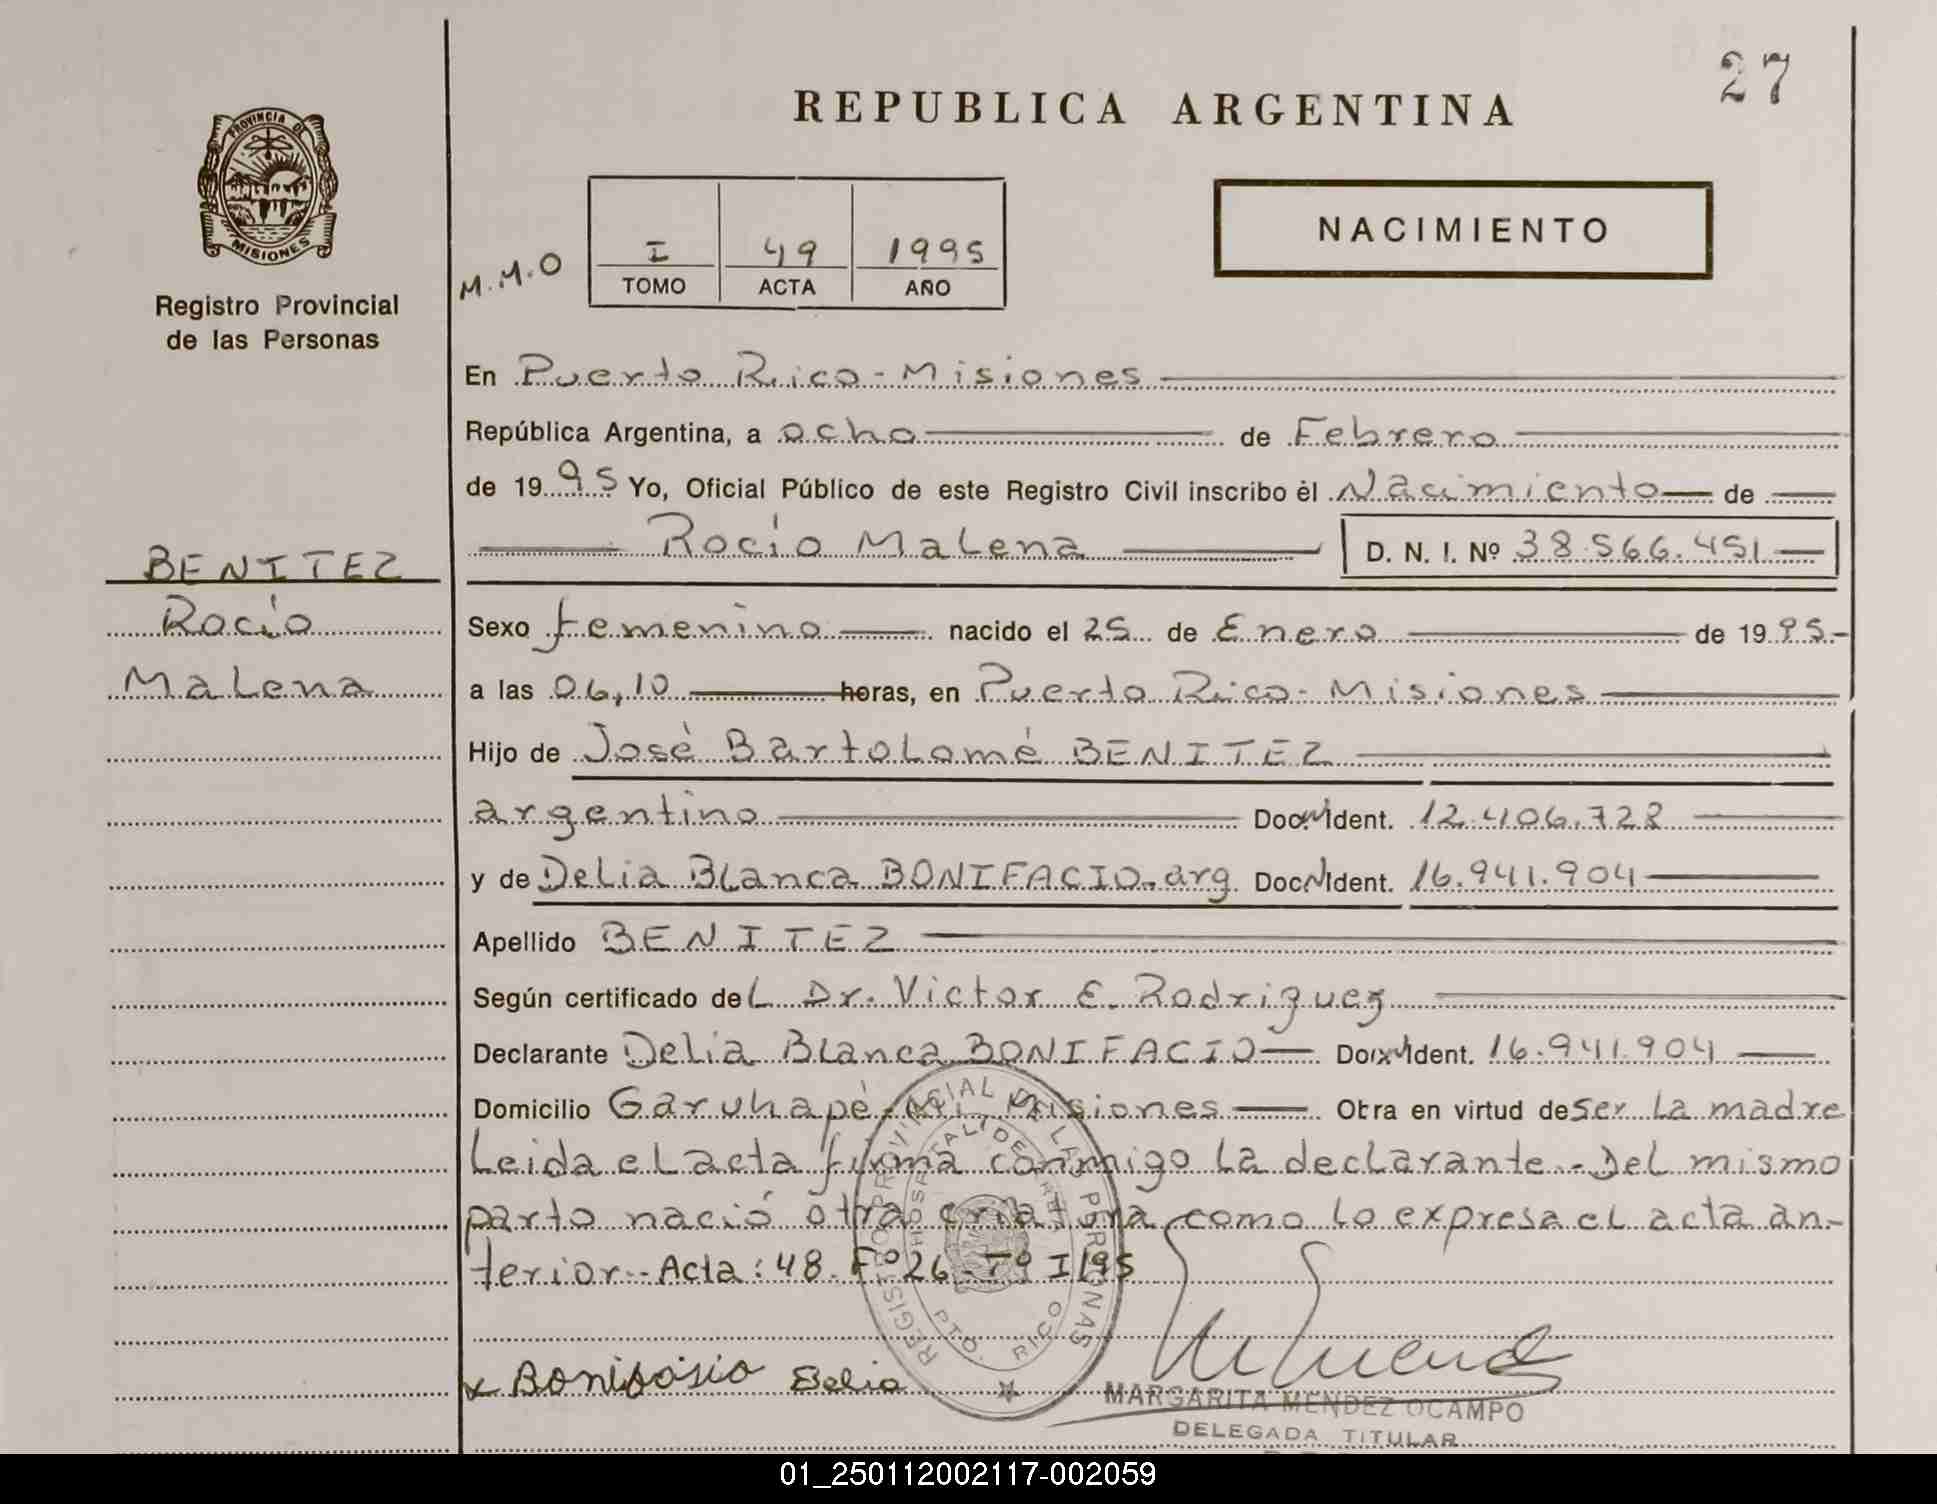 27
REPUBLICA ARGENTINA
PROVINCIA DE
MISIONES
NACIMIENTO
M.M.O
I 49 1995
TOMO ACTA AÑO
Registro Provincial
de las Personas
En Puerto Rico - Misiones
República Argentina, a ocho de Febrero
de 1995 Yo, Oficial Público de este Registro Civil inscribo el Nacimiento de
Rocío Malena D. N. I. Nº 38.566.451
BENITEZ
Rocío
Malena
Sexo femenino nacido el 25 de Enero de 1995
a las 06,10 horas, en Puerto Rico - Misiones
Hijo de José Bartolomé BENITEZ
argentino Doc. Ident. 12.406.728
y de Delia Blanca BONIFACIO. arg. Doc. Ident. 16.941.904
Apellido BENITEZ
Según certificado del Dr. Victor E. Rodriguez
Declarante Delia Blanca BONIFACIO Doc. Ident. 16.941.904
Domicilio Garuhapé, Misiones Obra en virtud de ser la madre
Leida el acta firma conmigo la declarante.- Del mismo
parto nació otra criatura como lo expresa el acta an-
terior.- Acta: 48. Fº 26 - Tº I/95
REGISTRO PROVINCIAL DE LAS PERSONAS
PTO. RICO
x Bonifasio Delia
MARGARITA MENDEZ OCAMPO
DELEGADA TITULAR
01_250112002117-002059